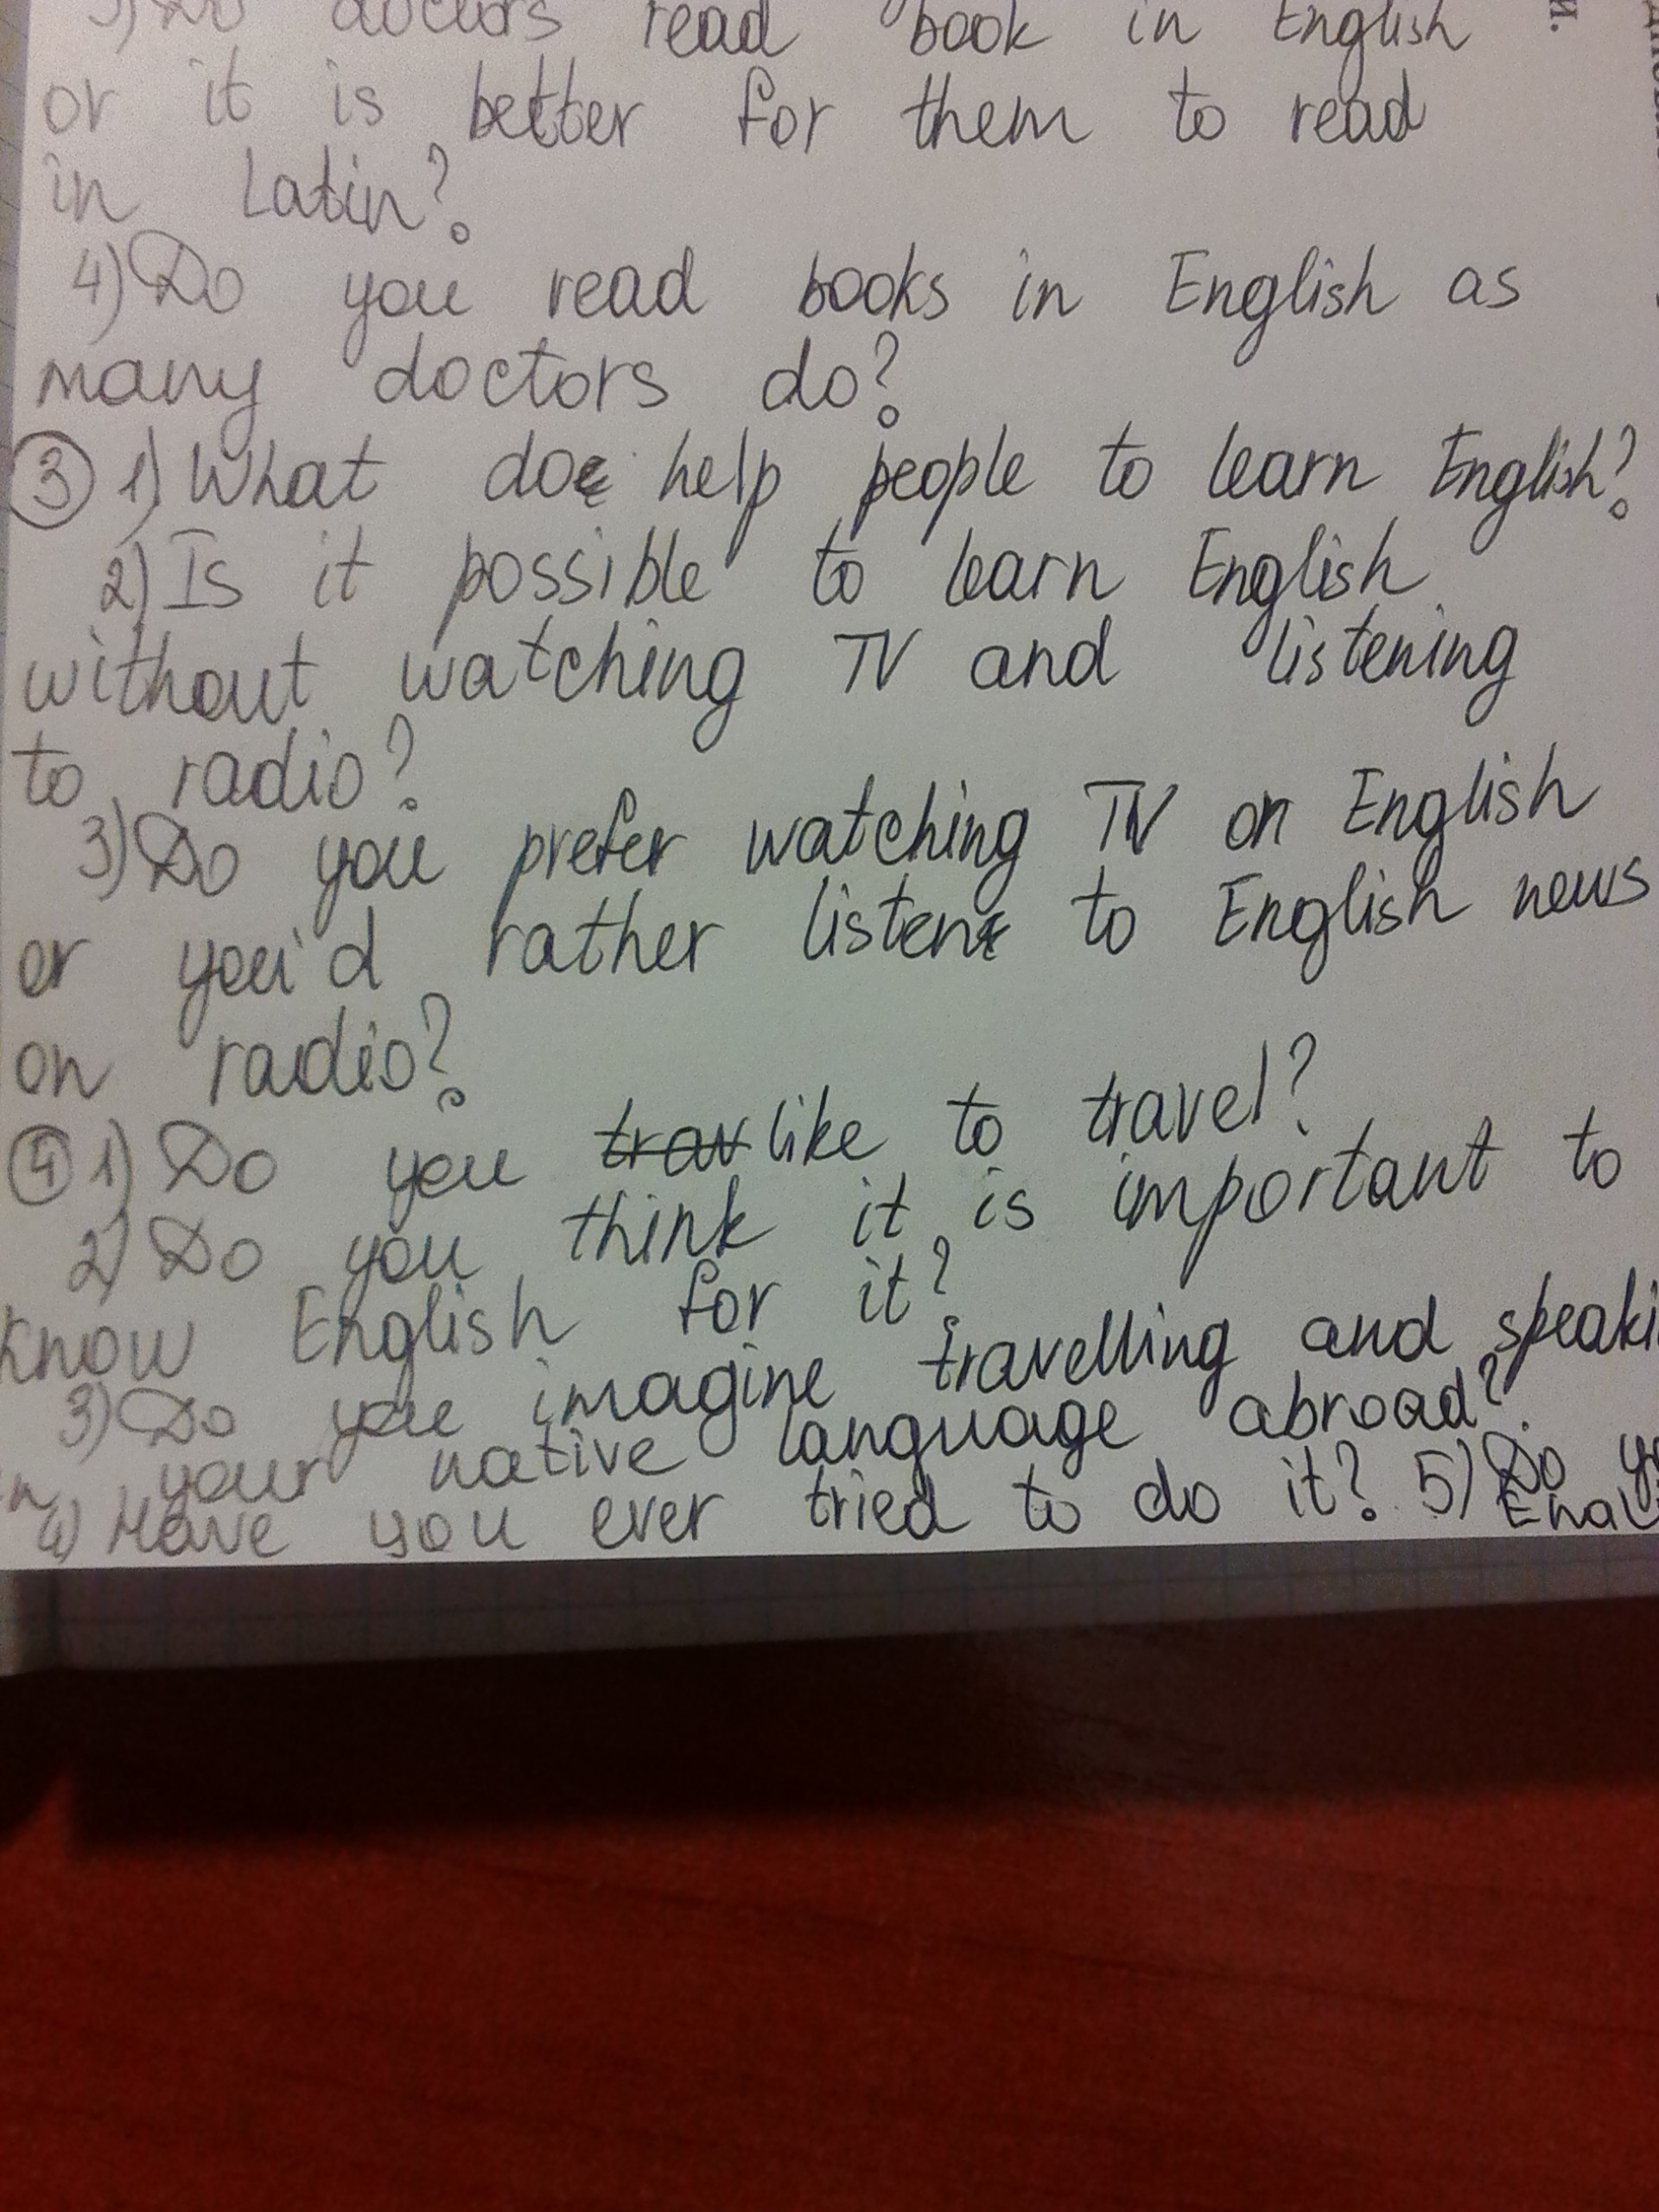 3) Do doctors read book in English
or it is better for them to read
in Latin?
4) Do you read books in English as
many doctors do?
3 1) What doe help people to learn English?
2) Is it possible to learn English
without watching TV and listening
to radio?
3) Do you prefer watching TV on English
or you'd rather listen to English news
on radio?
4 1) Do you trav like to travel?
2) Do you think it is important to
know English for it?
3) Do you imagine travelling and speaki
n your native language abroad?
4) Have you ever tried to do it? 5) Do yo